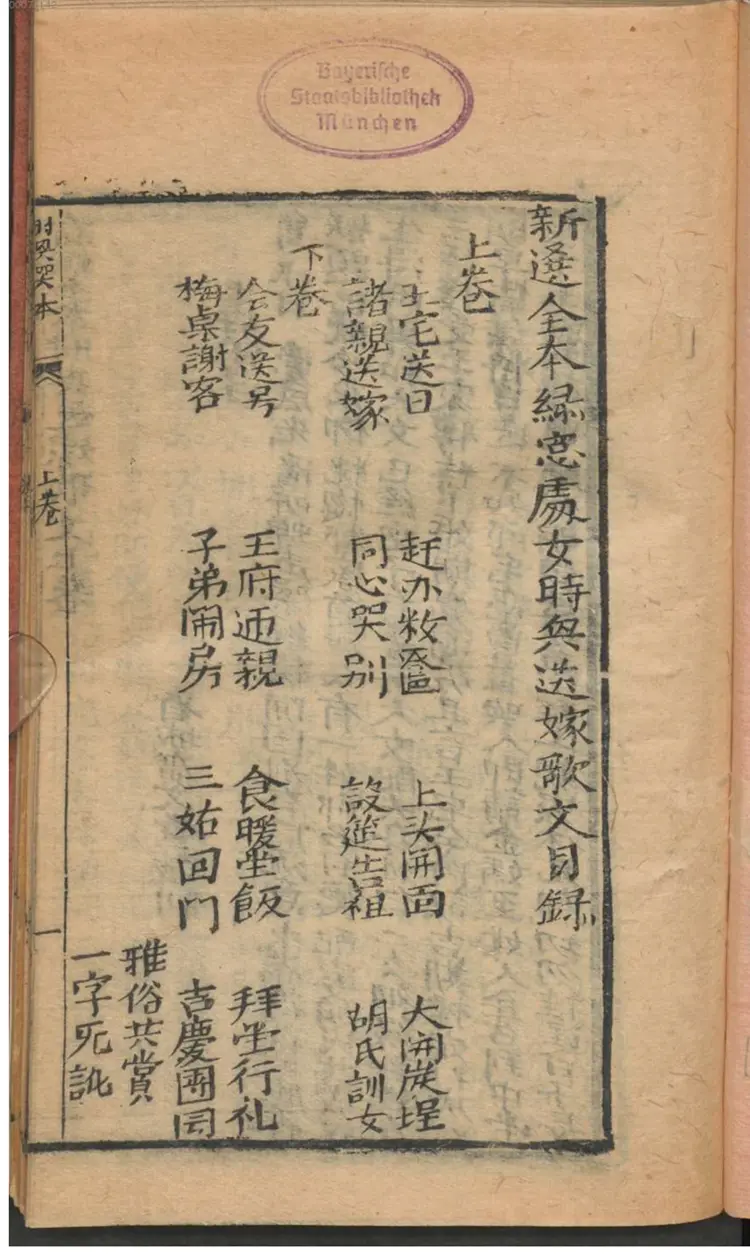 Bayerische
Staatsbibliothek
München
新選全本綠窓處女時與送嫁歌文目録
上卷
王宅送日 赶办敉奩 上头開面 大開炭埕
諸親送嫁 同心哭别 設筵告祖 胡氏訓女
下卷
会友送号 王府迊親 食暖堂飯 拜堂行礼
梅桌謝客 子弟鬧房 三姑回門 吉慶團囩
雅俗共賞
一字无訛
哭本
上卷
一